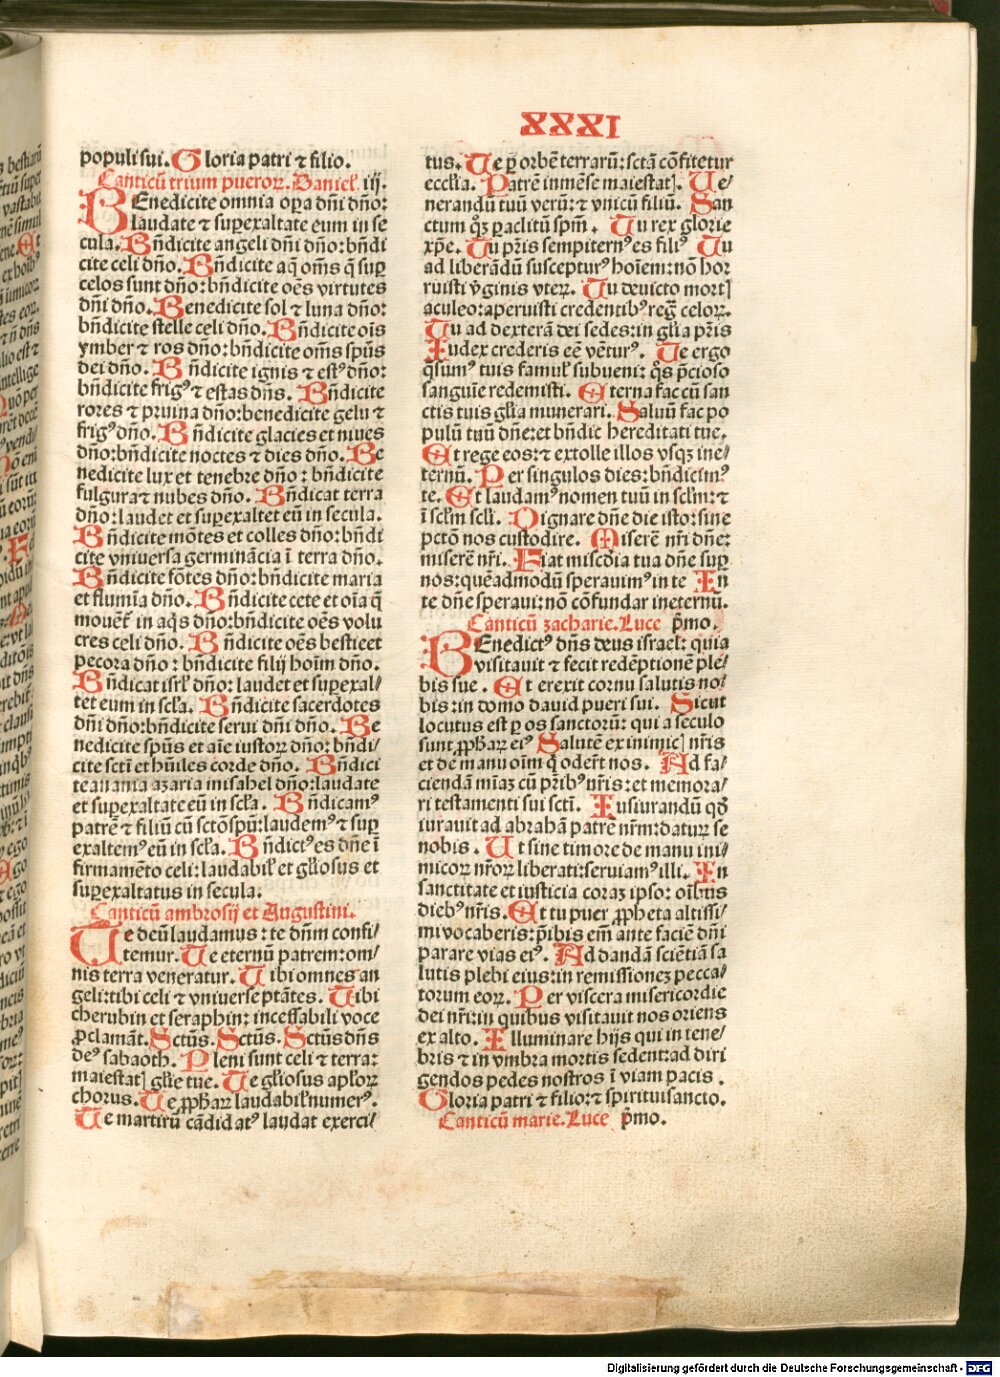 XXXI
populi sui. Gloria patri ⁊ filio.
Canticū trium pueroꝝ. Danieł iij.
BEnedicite omnia oꝑa dñi dño:
laudate ⁊ suꝑexaltate eum in se
cula. Bñdicite angeli dñi dño: bñdi
cite celi dño. Bñdicite aq̄ om̄s q̄ suꝑ
celos sunt dño: bñdicite oēs virtutes
dñi dño. Benedicite sol ⁊ luna dño:
bñdicite stelle celi dño. Bñdicite oīs
ymber ⁊ ros dño: bñdicite om̄s spūs
dei dño. Bñdicite ignis ⁊ estꝰ dño:
bñdicite frigꝰ ⁊ estas dñs. Bñdicite
rores ⁊ pruina dño: benedicite gelu ⁊
frigꝰ dño. Bñdicite glacies et niues
dño: bñdicite noctes ⁊ dies dño. Be
nedicite lux et tenebre dño: bñdicite
fulgura ⁊ nubes dño. Bñdicat terra
dño: laudet et suꝑexaltet eū in secula.
Bñdicite mōtes et colles dño: bñdi
cite vniuersa germinācia ī terra dño.
Bñdicite fōtes dño: bñdicite maria
et flumīa dño. Bñdicite cete et oīa q̄
mouēt̄ in aq̄s dño: bñdicite oēs volu
cres celi dño. Bñdicite oēs bestie et
pecora dño: bñdicite filij hoīm dño.
Bñdicat isrł dño: laudet et suꝑexal/
tet eum in scła. Bñdicite sacerdotes
dñi dño: bñdicite serui dñi dño. Be
nedicite spūs et aīe iustoꝝ dño: bñdi/
cite sctī et hūiles corde dño. Bñdici
te anania azaria misahel dño: laudate
et suꝑexaltate eū in scła. Bñdicamꝰ
patrē ⁊ filiū cū sctō spū: laudemꝰ ⁊ suꝑ
exaltemꝰ eū in scła. Bñdictꝰ es dñe ī
firmamēto celi: laudabił et głiosus et
suꝑexaltatus in secula.
Canticū ambrosij et Augustini.
TE deū laudamus: te dñm confi/
temur. Te eternū patrem: om/
nis terra veneratur. Tibi omnes an
geli: tibi celi ⁊ vniuerse ptātes. Tibi
cherubin et seraphin: incessabili voce
ꝓclamāt. Sctūs. Sctūs. Sctūs dñs
deꝰ sabaoth. Pleni sunt celi ⁊ terra:
maiestatꝭ głie tue. Te głiosus apłoꝝ
chorus. Te ꝓpħaꝝ laudabił numerꝰ.
Te martirū cādidatꝰ laudat exerci/
tus. Te ꝑ orbē terrarū: sctā cōfitetur
eccłia. Patrē inmēse maiestatꝭ. Ue/
nerandū tuū verū: ⁊ vnicū filiū. San
ctum qꝫ ꝑaclitū spm̄. Tu rex glorie
xp̄e. Tu pr̄is sempiternꝰ es filiꝰ. Tu
ad liberādū suscepturꝰ hoīem: nō hor
ruisti v̄ginis vteꝝ. Tu deuicto mortꝭ
aculeo: aperuisti credentibꝰ regͣ celoꝝ.
Tu ad dexterā dei sedes: in głia pr̄is
Iudex crederis eē vētur̄ꝰ. Te ergo
q̄sumꝰ tuis famuł subueni: q̄s p̄cioso
sanguīe redemisti. Eterna fac cū san
ctis tuis głia munerari. Saluū fac po
pulū tuū dñe: et bñdic hereditati tue.
Et rege eos: ⁊ extolle illos vsqꝫ ine/
ternū. Per singulos dies: bñdicimꝰ
te. Et laudamꝰ nomen tuū in scłm: ⁊
ī scłm scłi. Dignare dñe die isto: sine
pctō nos custodire. Miserē nr̄i dñe:
miserē nr̄i. Fiat miscd̄ia tua dñe suꝑ
nos: quēadmodū sperauimꝰ in te In
te dñe speraui: nō cōfundar ineternū.
Canticū zacharie. Luce p̄mo.
BEnedictꝰ dñs deus israel: quia
visitauit ⁊ fecit redēptionē ple/
bis sue. Et erexit cornu salutis no/
bis: in domo dauid pueri sui. Sicut
locutus est ꝑ os sanctorū: qui a seculo
sunt ꝓpħaꝝ eiꝰ Salutē ex inimicꝭ nr̄is
et de manu oīm q̄ oderūt nos. Ad fa/
ciendā mīaꝫ cū pr̄ibꝰ nr̄is: et memora/
ri testamenti sui sctī. Iusiurandū qđ
iurauit ad abrahā patrē nr̄m: daturꝫ se
nobis. Ut sine timore de manu ini/
micoꝝ nr̄oꝝ liberati: seruiamꝰ illi. In
sanctitate et iusticia coraꝫ ipso: oībus
diebꝰ nr̄is. Et tu puer ꝓpħeta altissi/
mi vocaberis: p̄ibis em̄ ante faciē dñi
parare vias eiꝰ. Ad dandā sciētiā sa
lutis plebi eius: in remissionez pecca/
torum eoꝝ. Per viscera misericordie
dei nr̄i: in quibus visitauit nos oriens
ex alto. Illuminare hijs qui in tene/
bris ⁊ in vmbra mortis sedent: ad diri
gendos pedes nostros ī viam pacis.
Gloria patri ⁊ filio: ⁊ spiritui sancto.
Canticū marie. Luce p̄mo.
Digitalisierung gefördert durch die Deutsche Forschungsgemeinschaft - DFG